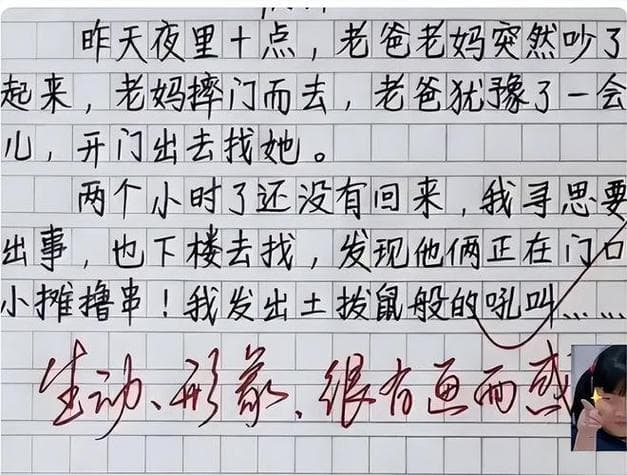 昨天夜里十点，老爸老妈突然吵了
起来，老妈摔门而去，老爸犹豫了一会
儿，开门出去找她。
两个小时了还没有回来，我寻思要
出事，也下楼去找，发现他俩正在门口
小摊撸串！我发出土拨鼠般的吼叫……
生动、形象、很有画面感